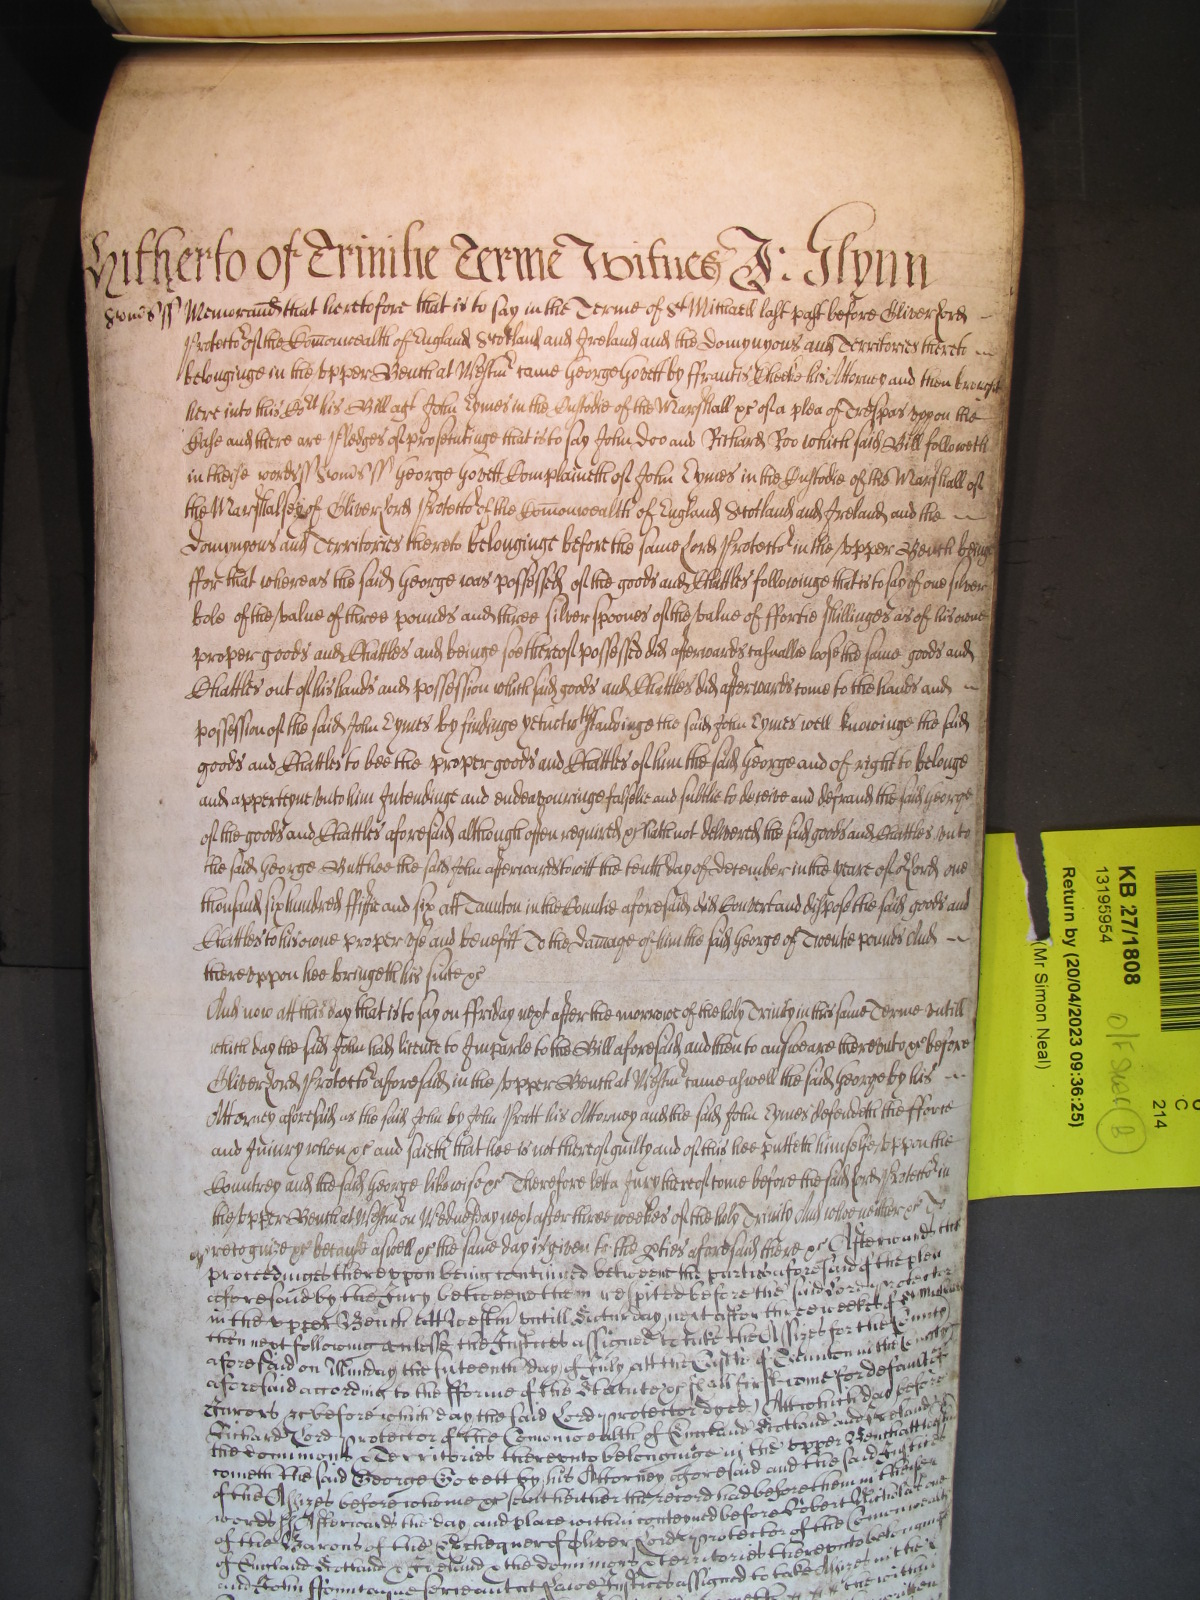 Hitherto of Trinitie Terme Witnes J: Glynn
Som̄s ss Memorand that heretofore that is to say in the Terme of St Michaell last past before Oliver Lord
Protector of the Com̄onwealth of England Scotland and Ireland and the Domynyons and Territories thereto
belonginge in the upper Bench at Westmr came George Govett by ffrancis Cheeke his Attorney and then brought
here into this Cort his Bill agt John Symes in the Custodie of the Marshall &c of a plea of Trespas uppon the
Case and there are Pledges of prosecutinge that is to say John Doo and Richard Roo which said Bill followeth
in theise words ss Som̄s ss George Govett Complaineth of John Symes in the Custodie of the Marshall of
the Marshalsey of Oliver Lord Protector of the Com̄onwealth of England Scotland and Ireland and the
Domynyons and Territories thereto belonginge before the same Lord Protector in the upper Bench beinge
ffor that whereas the said George was possessed of the goods and Chattles followinge that is to say of one silver
bole of the value of three pounds and three silver spoones of the value of ffortie shillinges as of his owne
proper goods and Chattles and beinge soe thereof possessed did afterwards casuallie loose the same goods and
Chattles out of his hands and possession which said goods and Chattles did afterwards come to the hands and
possession of the said John Symes by findinge yet notwthstandinge the said John Symes well knowinge the said
goods and Chattles to bee the proper goods and Chattles of him the said George and of right to belonge
and apperteyne unto him Intendinge and endeavouringe falselie and subtlie to deceive and defraud the said George
of the goods and Chattles aforesaid although often required &c hath not delivered the said goods and Chattles unto
the said George But hee the said John afterwards towitt the tenth day of December in the yeare of or Lord one
thousand six hundred ffiftie and six att Taunton in the Countie aforesaid did Convert and dispose the said goods and
Chattles to his owne proper use and benefitt To the damage of him the said George of Twentie pounds And
thereuppon hee bringeth his suite &c
And now att this day that is to say on ffriday next after the morrowe of the holy Trinity in this same Terme untill
which day the said John had licence to Imparle to the Bill aforesaid and then to answeare thereunto &c before
Oliver Lord Protector aforesaid in the upper Bench at Westmr came aswell the said George by his
Attorney aforesaid as the said John by John Pratt his Attorney and the said John Symes defendeth the fforce
and Injury when &c and saieth that hee is not thereof guilty and of this hee putteth himselfe uppon the
Countrey and the said George likewise &c Therefore lett a Jury thereof come before the said Lord Protector in
the upper Bench at Westmr on Wednesday next after three weekes of the holy Trinity And who neither &c To
recognize &c because aswell &c the same day is given to the p̱ties aforesaid there &c Afterwards the
proceedinges thereuppon being continued betweene the parties aforesaid of the plea
aforesaid by the Jury betweene them respited before the said Lord Protector
in the upper Bench att Westm̄ untill Saturday next after three weekes of St Michael
then next following unlesse the Justices assigned to take the Assizes for the County
aforesaid on Munday the day of July att the Castle of Taunton in the County
aforesaid according to the fforme of the Statute &c shall first come for default of
Jurors &c before which day the said Lord Protector dyed Att which day before
Richard Lord Protector of the Com̄onwealth of England Scotland and Ireland &
the dominions & Territories thereunto belonginge in the upper Bench att Westm̄
cometh the said George Govett by his Attorney aforesaid and the said Justices
of the Assizes before whome &c sent hither their record had before them in theise
words ss Afterwards the day and place within conteyned before Robert Nicholas one
of the Barons of the Exchequer of Oliver Lord Protector of the Com̄onwealth
of England Scotland & Ireland & the dominions & Territories thereunto belonging
and John ffountaine Serjeant at Lawe Justices assigned to take Assizes in the
the within
KB 27/1808
13195954
Return by (20/04/2023 09:36:25)
(Mr Simon Neal)
C
214